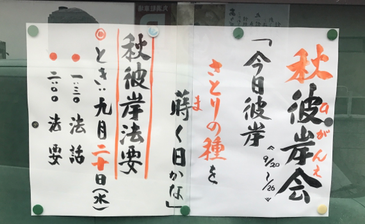 秋彼岸会
ひがんえ
「今日彼岸
9/20〜9/26
さとりの種を
ま
蒔く日かな」
秋彼岸法要
とき:九月二十日(水)
・一:三〇 法話
・二:〇〇 法要